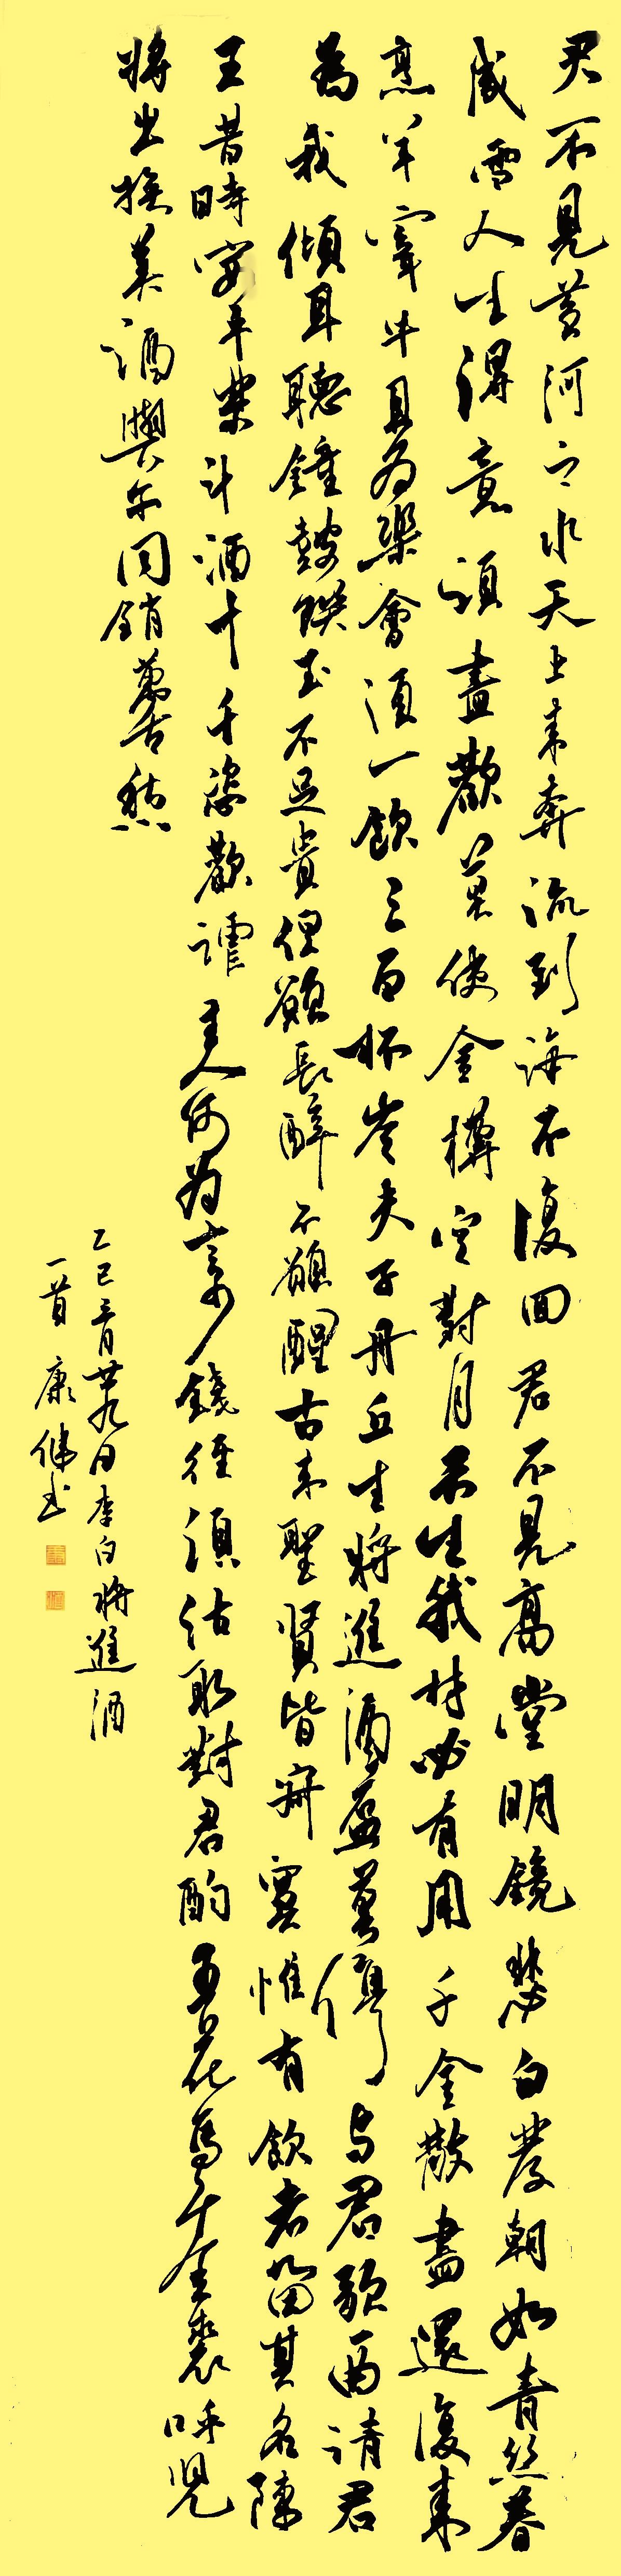 君不見黃河之水天上来奔流到海不復回君不見高堂明鏡悲白髮朝如青丝暮
成雪人生得意須盡歡莫使金樽空對月天生我材必有用千金散盡還復来
烹羊宰牛且為樂會須一飲三百杯岑夫子丹丘生將進酒盃莫停与君歌一曲請君
為我傾耳聽鍾鼓饌玉不足貴但願長醉不願醒古来聖賢皆寂寞惟有飲者留其名陳
王昔時宴平樂斗酒十千恣歡謔主人何為言少錢徑須沽取對君酌五花馬千金裘呼兒
將出換美酒與尔同銷萬古愁
乙巳三月廿九日李白將進酒
一首康偉书